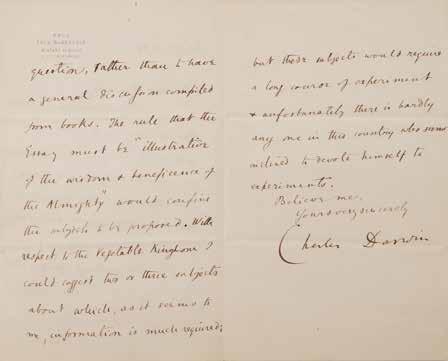 question, rather than to have
a general discussion compiled
from books. The rule that the
Essay must be "illustrative
of the wisdom & beneficence of
the Almighty" would confine
the subjects to be proposed. With
respect to the Vegetable Kingdom I
could suggest two or three subjects
about which, as it seems to
me, information is much required;
but these subjects would require
a long course of experiment
& unfortunately there is hardly
any one in this country who seems
inclined to devote himself to
experiments.
Believe me.
Yours very sincerely
Charles Darwin